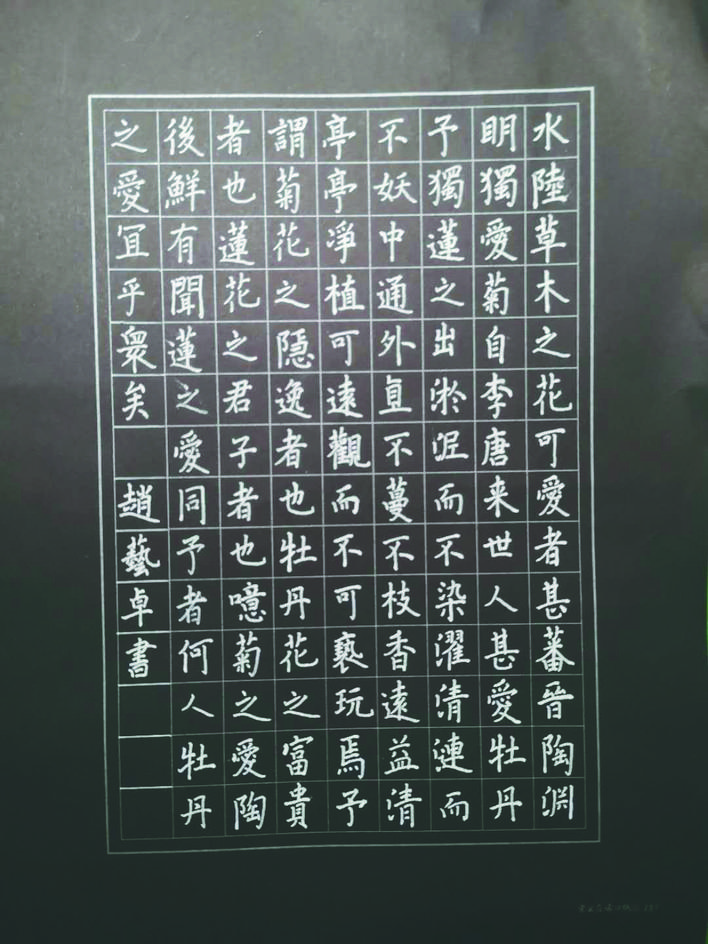 水陸草木之花可愛者甚蕃晉陶淵
明獨愛菊自李唐来世人甚愛牡丹
予獨蓮之出淤泥而不染濯清漣而
不妖中通外直不蔓不枝香遠益清
亭亭淨植可遠觀而不可褻玩焉予
謂菊花之隱逸者也牡丹花之富貴
者也蓮花之君子者也噫菊之愛陶
後鮮有聞蓮之愛同予者何人牡丹
之愛宜乎衆矣 趙藝卓書